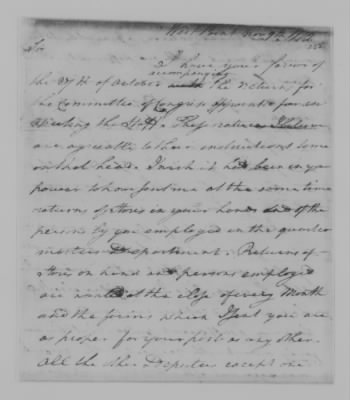 West Point Nov 9th
Sir
I have your favor of
the 27th of October
accompanying
the returns for
the Committee of Congress appointed for in
specting the Staff. These returns I believe
are agreeable to their instructions some
on that head. I wish it had been in your
power to have sent me at the same time
returns of stores in your hands and of the
persons by you employed in the quarter
masters department. Returns of
stores on hand and persons employed
are wanted at the close of every Month
and the forms which I sent you are
as proper for your post as any other.
All the other Deputies except one